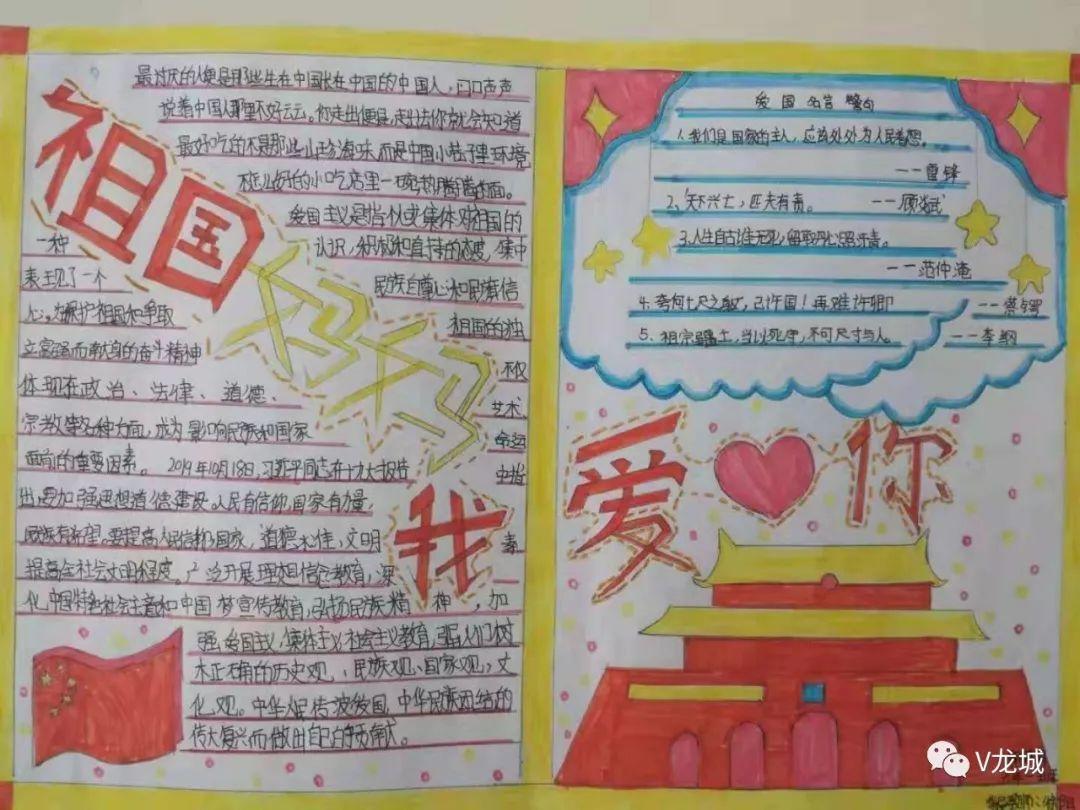 祖国妈妈我爱你
最讨厌的人便是那些生在中国长在中国的中国人，口口声声
说着中国人哪里不好云云。你走出便是,走出去你就会知道
最好吃的不是那些山珍海味而是中国小巷子里环境
不怎么好的小吃店里一碗热腾腾的面。
爱国主义是指个人或集体对祖国的
一种 认识，积极和支持的态度，集中
表现了一个 民族自尊心和民族自信
心，为维护祖国和争取 祖国的独
立富强而献身的奋斗精神
体现在政治、法律、道德、 艺术
宗教等各种方面，成为影响民族和国家 命运
面前的重要因素。2019年10月18日,习近平同志在十九大报告 中指
出,要加强思想道德建设。人民有信仰,国家有力量,
民族有希望,要提高人民 国家，道德水佳，文明 素
提高全社会文明程度。广泛开展理想信念教育,深
化 中国特色社会主义和中国梦宣传教育,弘扬民族精神，加
强爱国主义,集体主义,社会主义教育,引 人们树
木正确的历史观、民族观、国家观、文
化观。中华 爱国,中华民族团结的
伟大复兴而做出自己的 贡献。
爱国名言警句
1.我们是国家的主人，应该处处为人民着想。
——雷锋
2、天下兴亡，匹夫有责。 ——顾炎武
3.人生自古谁无死,留取丹心照汗青。
——范仲淹
4.夸何七尺之躯，已许国！再难许卿
——蔡锷
5、祖宗疆土，当以死守，不可尺寸与人。 ——李纲
V龙城